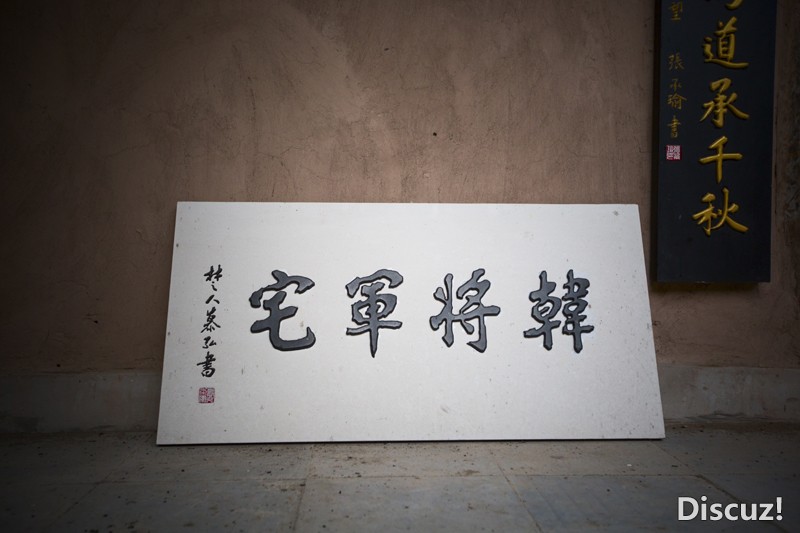 韓將軍宅
人慕弘書
道承千秋
望 張不瑜書
Discuz!